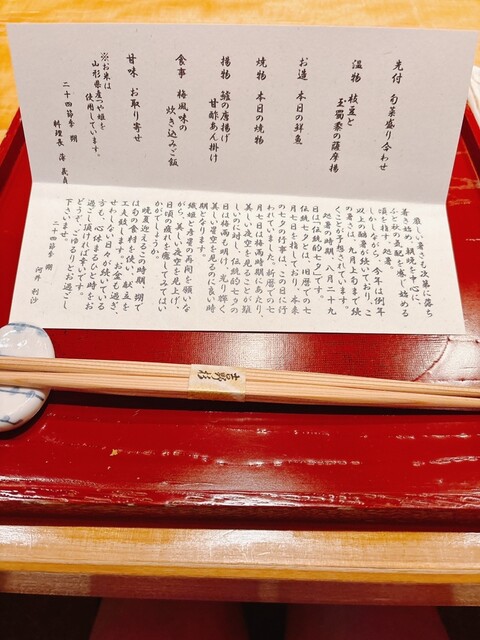 先付　旬菜盛り合わせ
温物　枝豆と
玉蜀黍の薩摩揚
お造　本日の鮮魚
焼物　本日の焼物
揚物　鱧の唐揚げ
甘酢あん掛け
食事　梅風味の
炊き込みご飯
甘味　お取り寄せ
※お米は
山形県産「つや姫」を
使用しています。
二十四節季　朔
料理長
激しい暑さも次第に落ち
着き始め、朝晩を中心に、
ふと秋の気配を感じ始める
頃を指す、処暑。
しかしながら、今年は例年
以上の酷暑が続いており、こ
の暑さは、九月上旬まで続
くことが予想されています。
処暑の時期、八月二十九
日は「伝統的七夕」です。
伝統七夕とは、旧暦での七
月七日を指しており、本来
の七夕の行事は、この日に行
われていました。新暦での七
月七日は梅雨時期にあたり、
美しい夜空を見ることが難
しいのに対し、伝統的七夕の
日は梅雨も明け、光り輝く
美しい星空を見るのに良い時
期となります。
織姫と彦星の再開を願いな
がら、美しい夜空を見上げ、
日頃の疲れを癒してみてはい
かがでしょうか。
晩夏迎えるこの時期、朔で
は旬の食材を使い、献立を
工夫致します。お盆も過ぎ、
せわしない日々が続いている
方も、心休まるひと時をお
過ごし頂ければ幸いです。
どうぞ、ごゆるりとお過ごし
下さいませ。
二十四節季　朔
河井　利沙
吉野杉